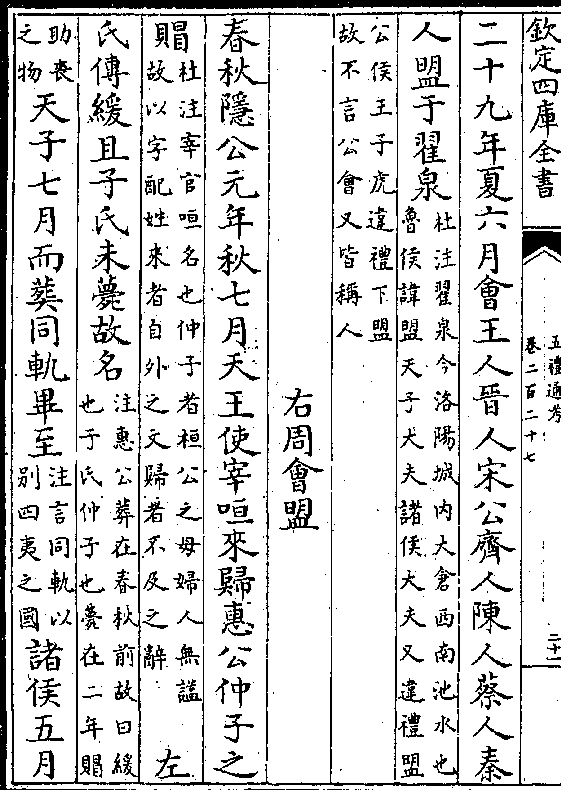 欽定四庫全書
五禮通考
卷二百二十七
二十一
二十九年夏六月會王人晉人宋公齊人陳人蔡人秦
人盟于翟泉
杜注翟泉今洛陽城内大倉西南池水也
魯侯諱盟天子大夫諸侯大夫又違禮盟
公侯王子虎違禮下盟
故不言公會又皆稱人
右周會盟
春秋隱公元年秋七月天王使宰咺來歸惠公仲子之
賵
杜注宰官咺名也仲子者桓公之母婦人無諡
故以字配姓來者自外之文歸者不及之辭
左
氏傳緩且子氏未薨故名
注惠公葬在春秋前故曰緩
也子氏仲子也薨在二年賵
助喪
之物
天子七月而葬同軌畢至
注言同軌以
别四夷之國
諸侯五月